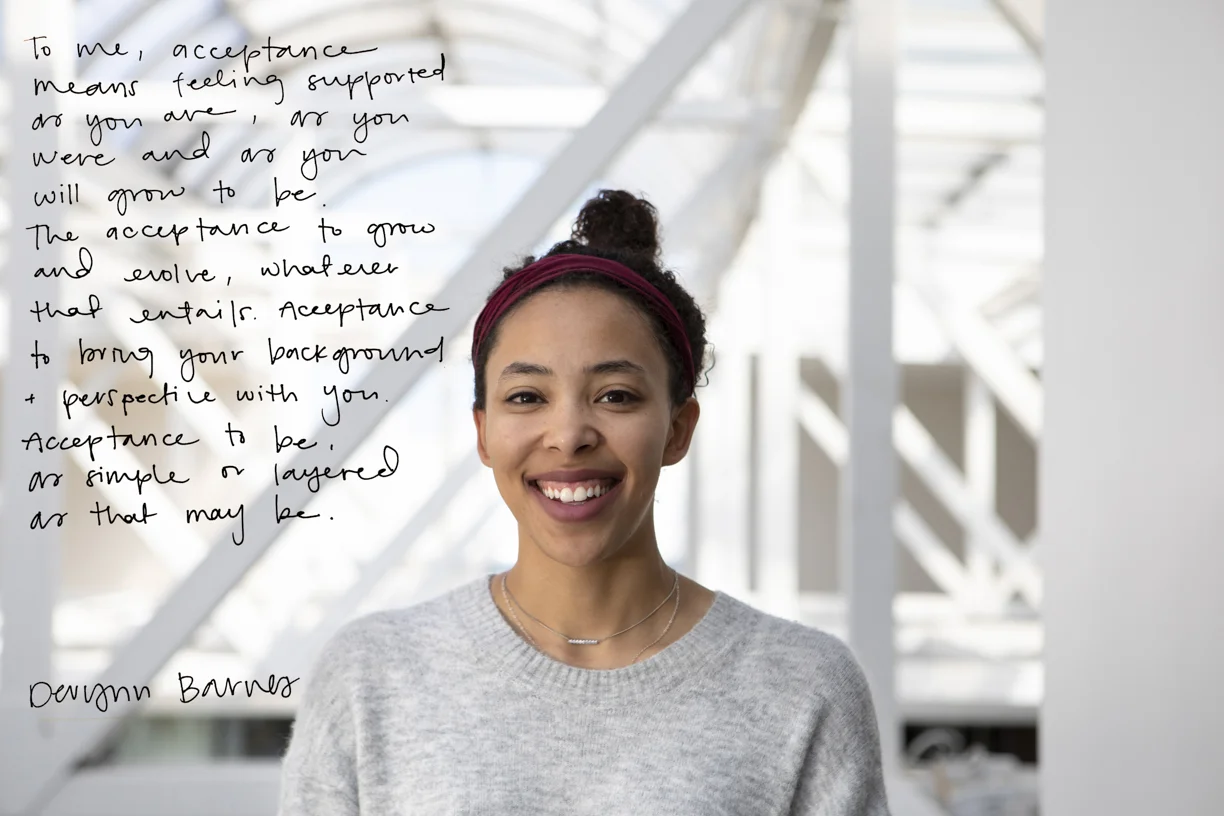 To me, acceptance
means feeling supported
as you are, as you
were and as you
will grow to be.
The acceptance to grow
and evolve, whatever
that entails. Acceptance
to bring your background
+ perspective with you.
Acceptance to be,
as simple or layered
as that may be.
Devynn Barnes